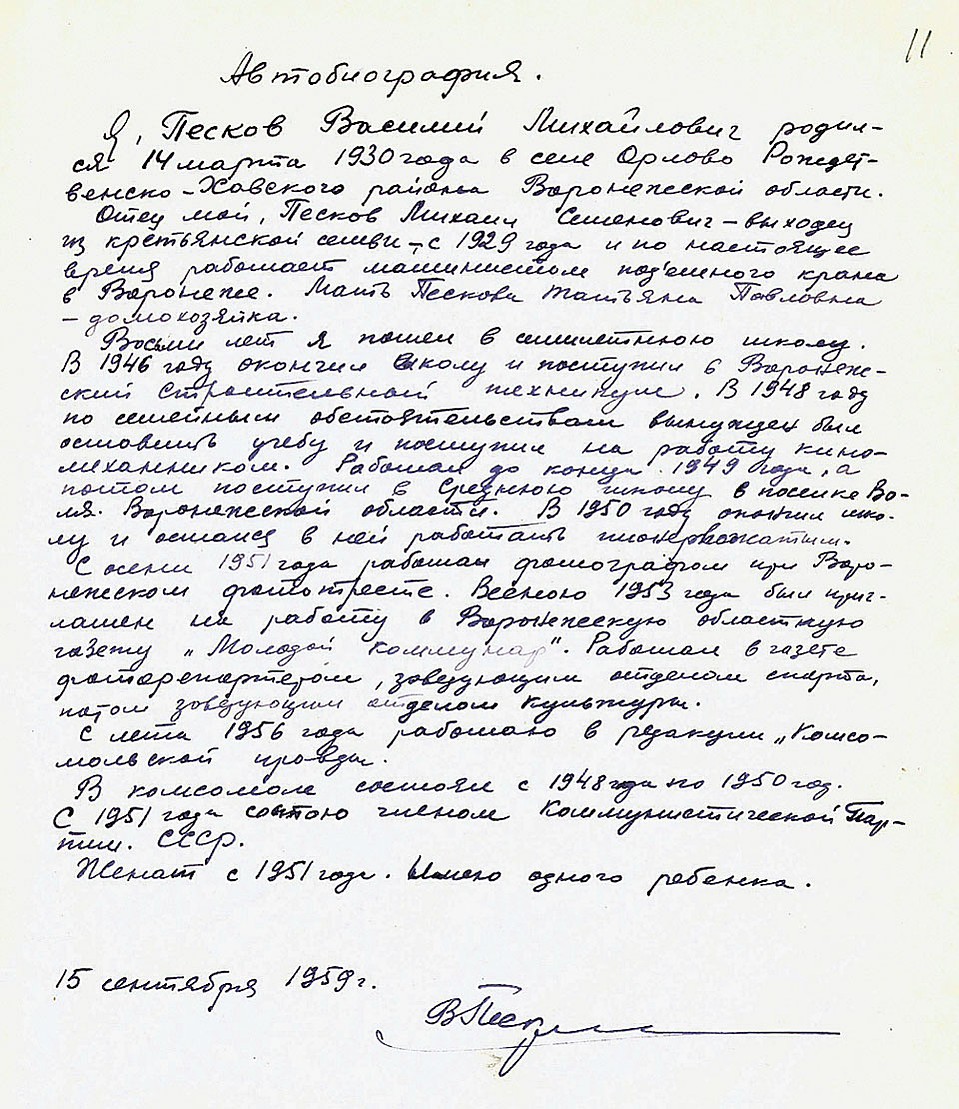 11
Автобиография.
Я, Песков Василий Михайлович родил-
ся 14 марта 1930 года в селе Орлово Рождет-
венско-Хавского района Воронежской области.
Отец мой, Песков Михаил Семенович – выходец
из крестьянской семьи, с 1929 года и по настоящее
время работает машинистом под'емного крана
в Воронеже. Мать Пескова Татьяна Павловна
– домохозяйка.
Восьми лет я пошел в семилетнюю школу.
В 1946 году окончил школу и поступил в Воронеж-
ский строительный техникум. В 1948 году
по семейным обстоятельствам вынужден был
оставить учебу и поступил на работу кино-
механником. Работал до конца 1949 года, а
потом поступил в среднюю школу в поселке Во-
ля. Воронежской области. В 1950 году окончил шко-
лу и остался в ней работать пионервожатым.
С осени 1951 года работал фотографом при Воро-
нежском фототресте. Весною 1953 года был приг-
лашен на работу в Воронежскую областную
газету „Молодой коммунар". Работал в газете
фоторепортером, заведующим отделом спорта,
потом заведующим отделом культуры.
С лета 1956 года работаю в редакции „Комсо-
мольской правды.
В комсомоле состоял с 1948 года по 1950 год.
С 1951 года состою членом Коммунистической Пар-
тии. СССР.
Женат с 1951 года. Имею одного ребенка.
15 сентября 1959 г.
ВПеск